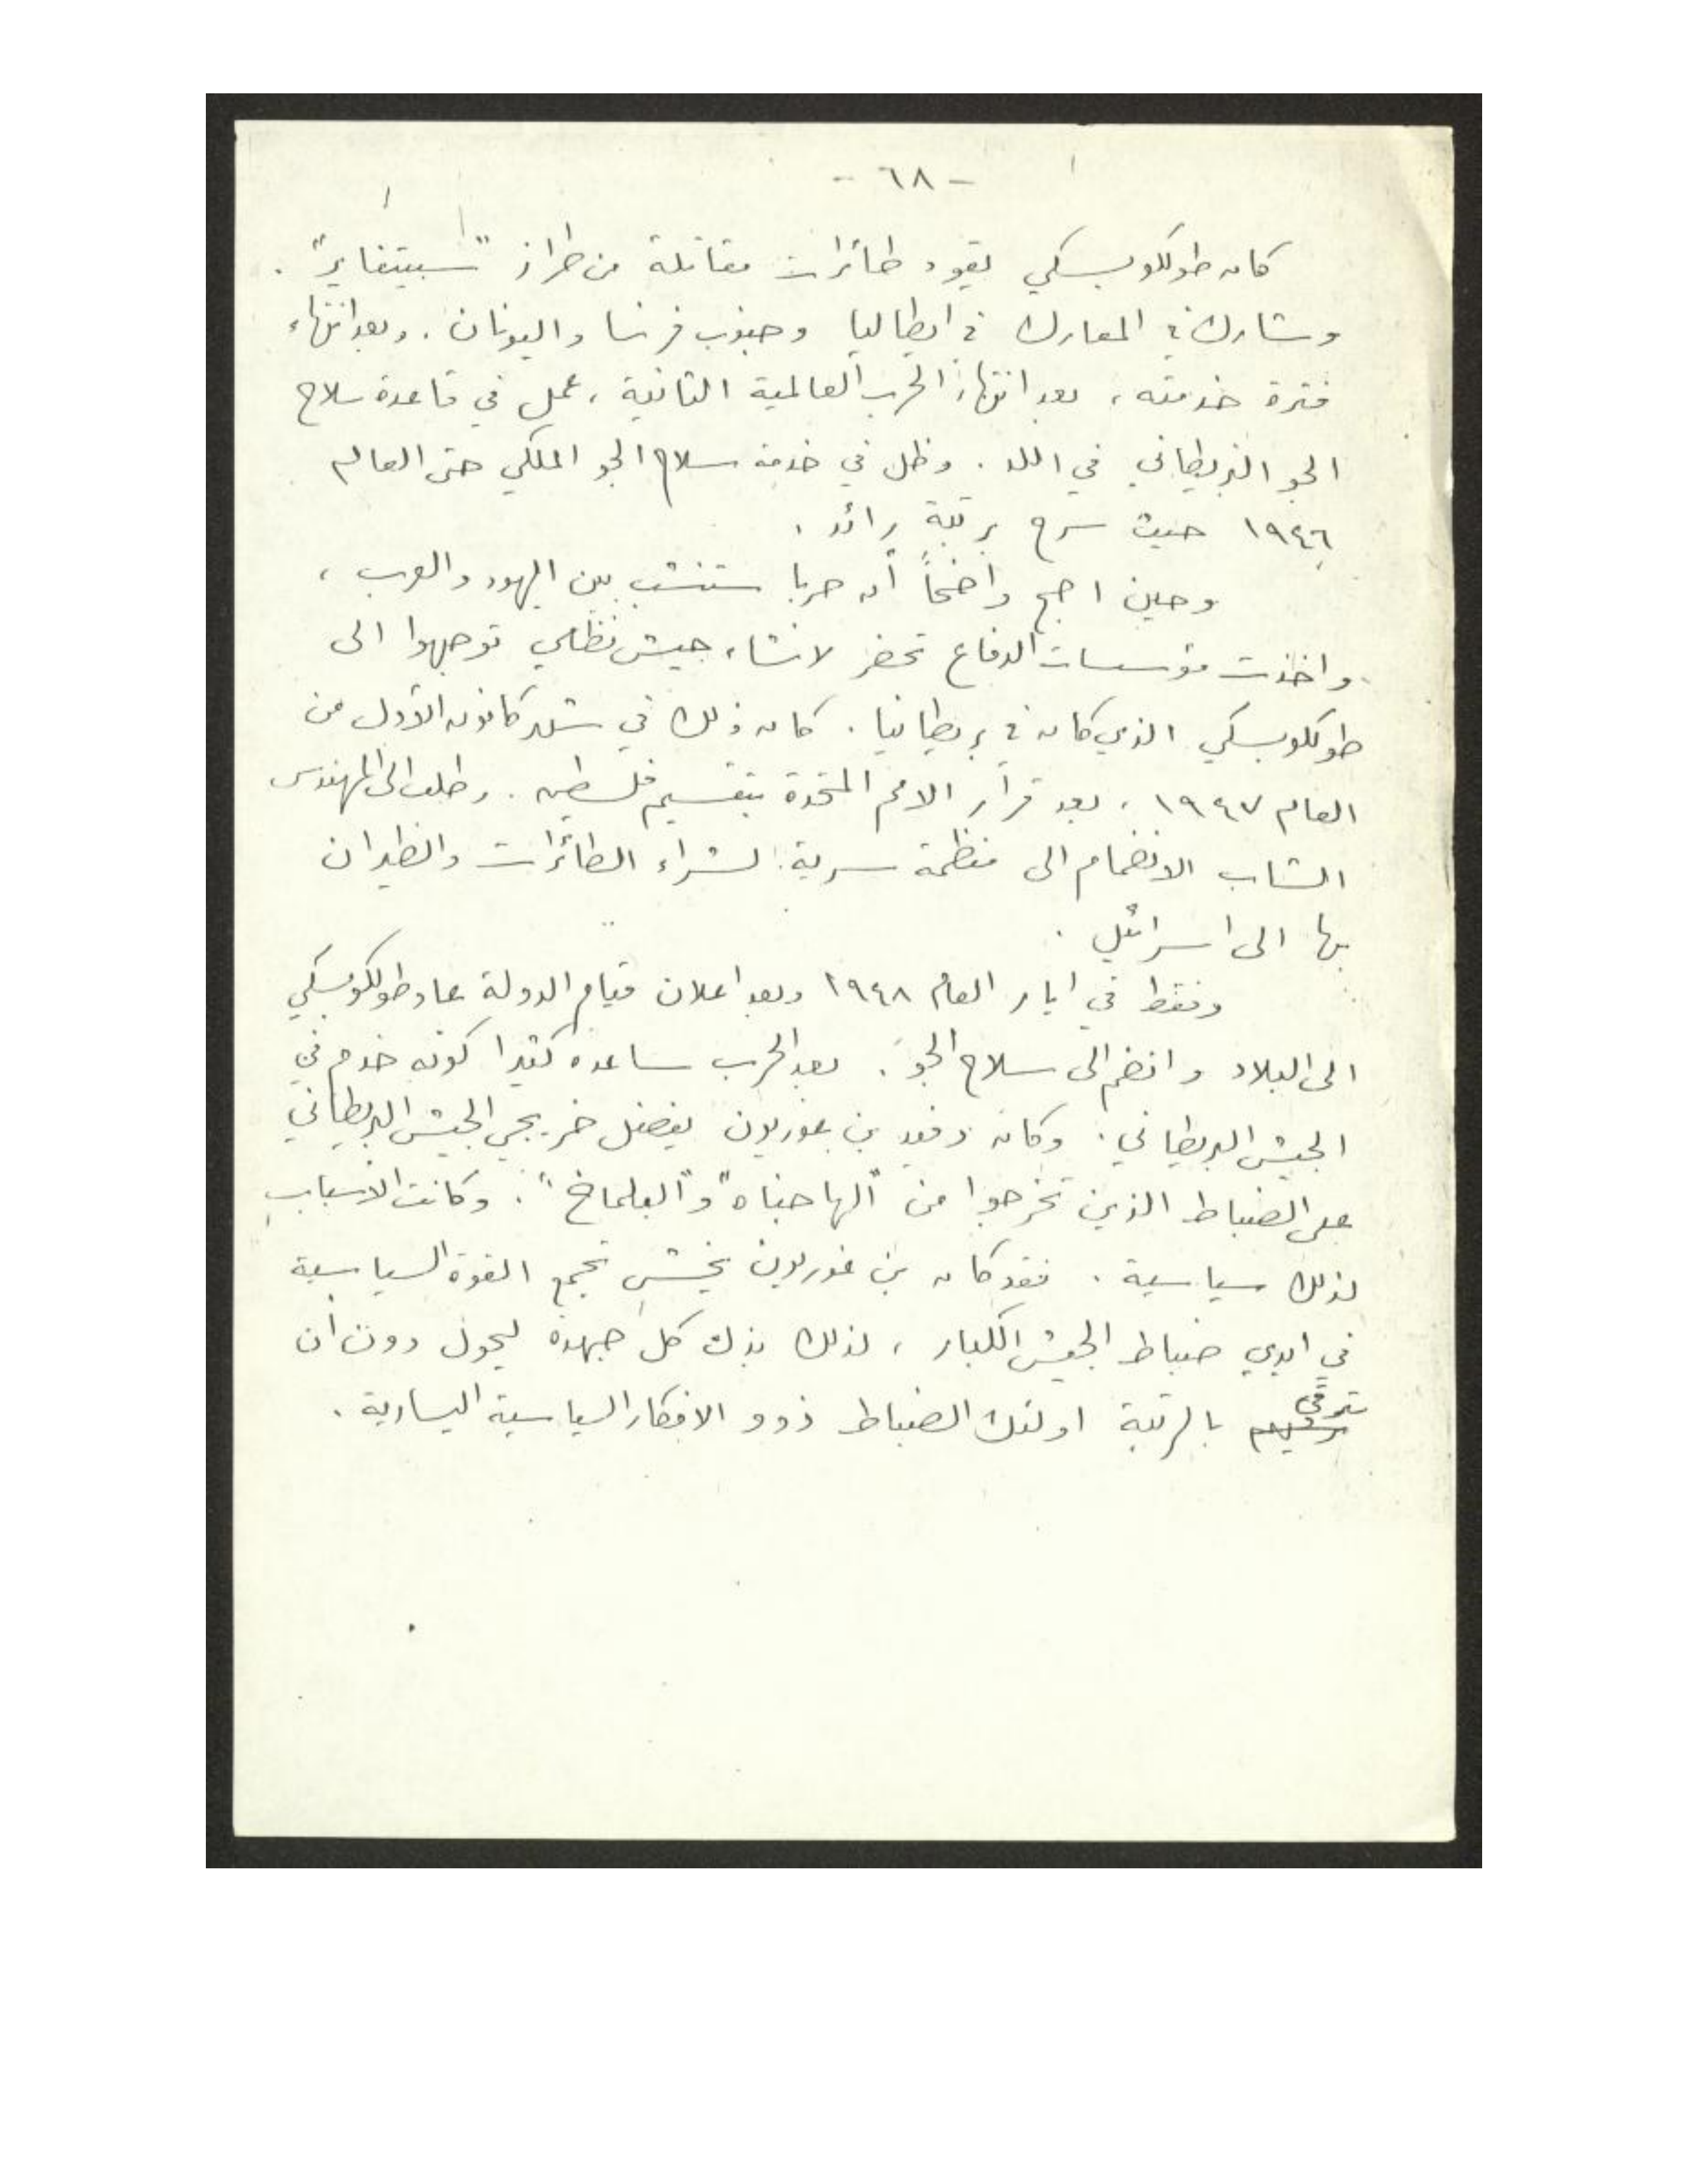 - ٦٨ -
كان طولكوبسكي يقود طائرات مقاتلة من طراز "سبيتفاير" .
وشارك في المعارك في ايطاليا وجنوب فرنسا واليونان . وبعد انتهاء
فترة خدمته ، بعد انتهاء الحرب العالمية الثانية ، عمل في قاعدة سلاح
الجو البريطاني في اللد . وظل في خدمة سلاح الجو الملكي حتى العام
١٩٤٦ حيث سرح برتبة رائد .
وحين اصبح واضحاً أن حربا ستنشب بين اليهود والعرب ،
واخذت مؤسسات الدفاع تحضر لانشاء جيش نظامي توجهوا الى
طولكوبسكي الذي كان في بريطانيا . كان ذلك في شهر كانون الأول من
العام ١٩٤٧ ، بعد قرار الامم المتحدة بتقسيم فلسطين . وطلب الى المهندس
الشاب الانضمام الى منظمة سرية لشراء الطائرات والطيران
بها الى اسرائيل .
وفقط في ايار العام ١٩٤٨ وبعد اعلان قيام الدولة عاد طولكوبسكي
الى البلاد وانضم الى سلاح الجو . بعد الحرب ساعده كثيرا كونه خدم في
الجيش البريطاني . وكان دفيد بن غوريون يفضل خريجي الجيش البريطاني
على الضباط الذين تخرجوا من "الهاجناه" و"البلماخ" . وكانت الاسباب
لذلك سياسية . فقد كان بن غوريون يخشى تجمع القوة السياسية
في ايدي ضباط الجيش الكبار ، لذلك بذل كل جهده ليحول دون ان
يترقى بالرتبة اولئك الضباط ذوو الافكار السياسية اليسارية .